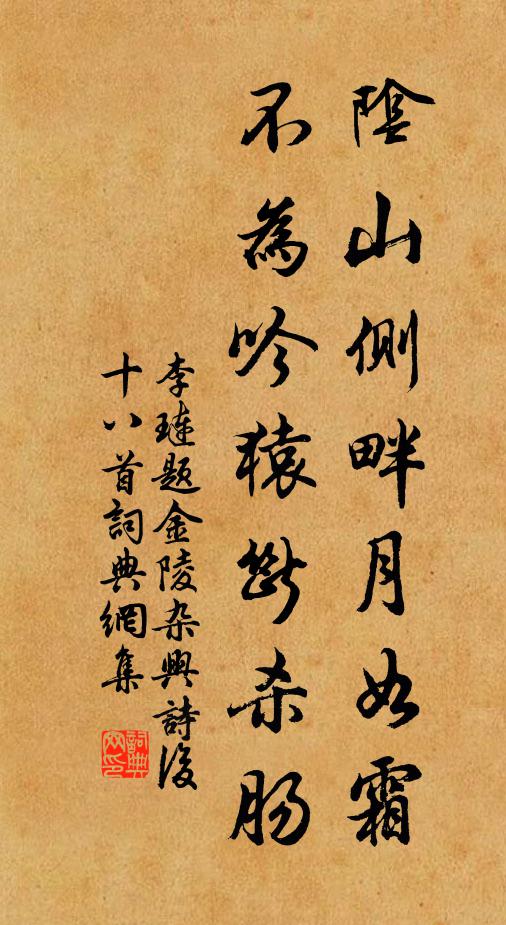 陰山側畔月如霜
不為吟猿斷殺腸
李璉題金陵杂興詩後
十八首詞典網集
詞典网印